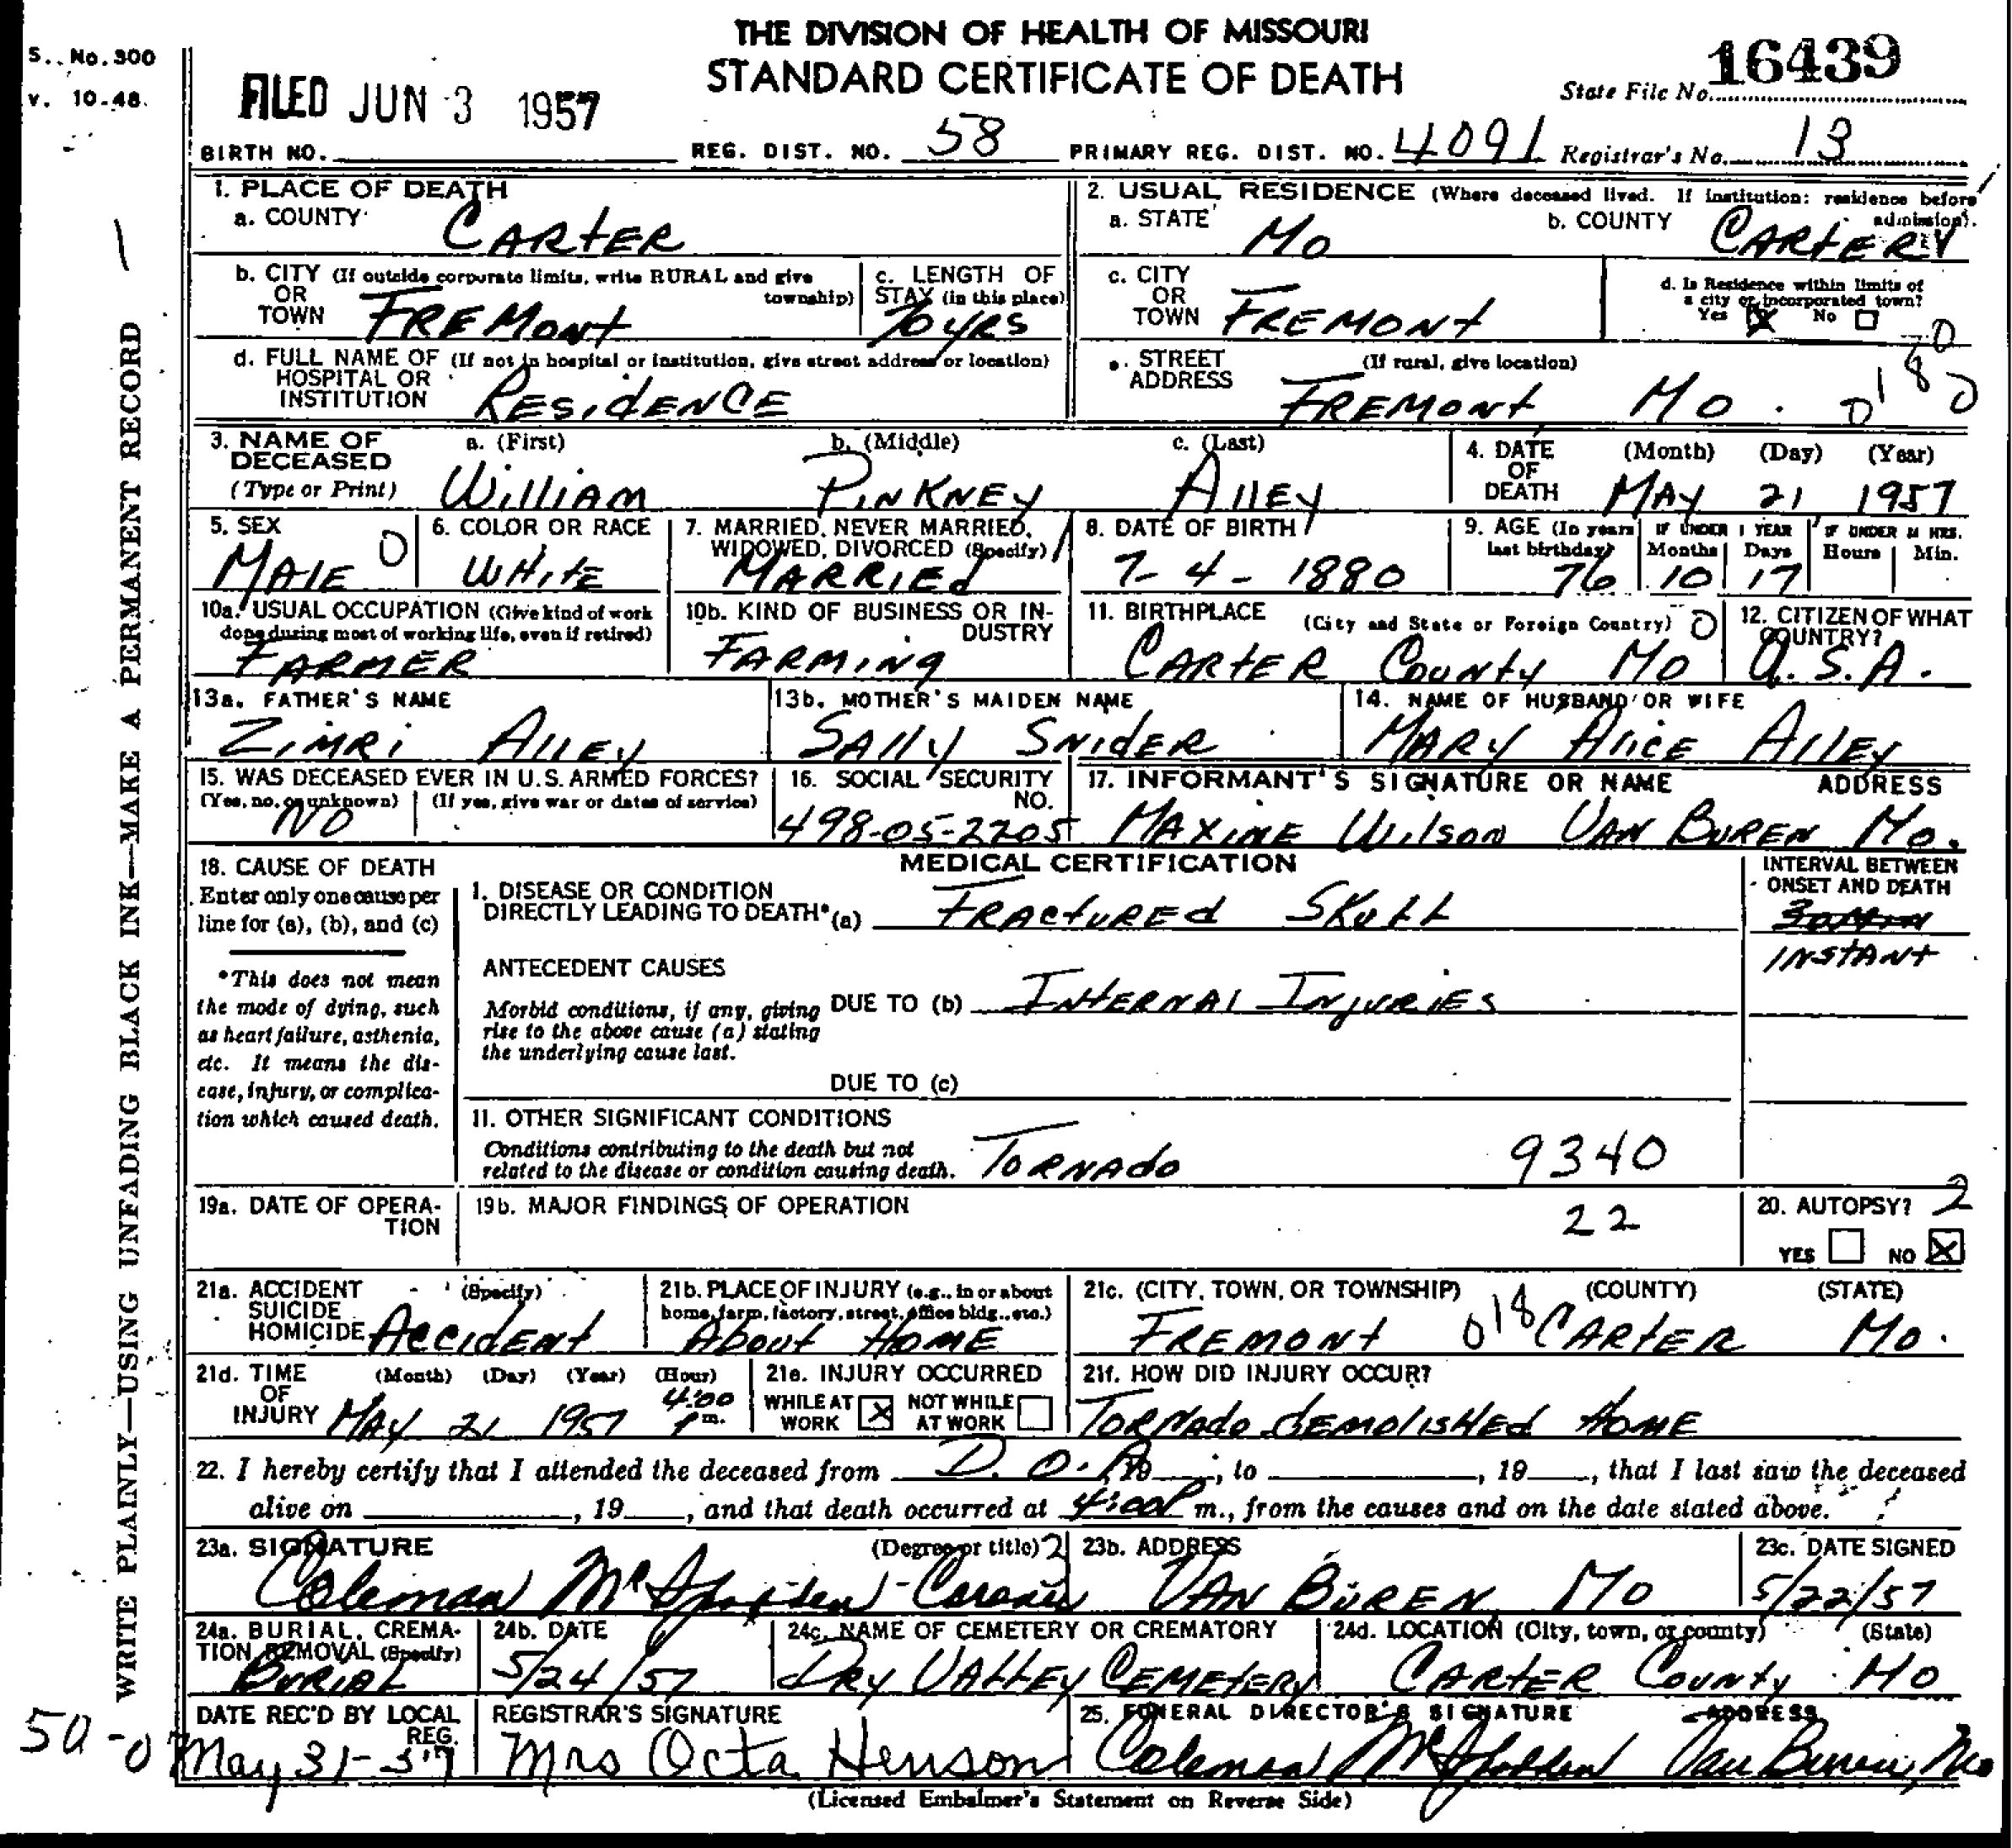 THE DIVISION OF HEALTH OF MISSOURI
STANDARD CERTIFICATE OF DEATH
S.. No. 300
v. 10-48.
FILED JUN 3 1957
State File No. 16439
BIRTH NO. REG. DIST. NO. 58 PRIMARY REG. DIST. NO. 4091 Registrar's No. 13
WRITE PLAINLY—USING UNFADING BLACK INK—MAKE A PERMANENT RECORD
1. PLACE OF DEATH
a. COUNTY CARTER
2. USUAL RESIDENCE (Where deceased lived. If institution: residence before admission).
a. STATE MO b. COUNTY CARTER
b. CITY (If outside corporate limits, write RURAL and give township) OR TOWN FREMONT
c. LENGTH OF STAY (in this place) 70 YRS
c. CITY OR TOWN FREMONT
d. Is Residence within limits of a city or incorporated town? Yes X No
d. FULL NAME OF (If not in hospital or institution, give street address or location) HOSPITAL OR INSTITUTION RESIDENCE
e. STREET ADDRESS (If rural, give location) FREMONT MO. 0180
3. NAME OF DECEASED (Type or Print)
a. (First) WILLIAM b. (Middle) PINKNEY c. (Last) AllEY
4. DATE OF DEATH (Month) (Day) (Year) MAY 21 1957
5. SEX MALE 0
6. COLOR OR RACE WHITE
7. MARRIED, NEVER MARRIED, WIDOWED, DIVORCED (Specify) MARRIED 1
8. DATE OF BIRTH 7-4-1880
9. AGE (In years last birthday) 76 IF UNDER 1 YEAR Months 10 Days 17 IF UNDER 24 HRS. Hours Min.
10a. USUAL OCCUPATION (Give kind of work done during most of working life, even if retired) FARMER
10b. KIND OF BUSINESS OR INDUSTRY FARMING
11. BIRTHPLACE (City and State or Foreign Country) 0 CARTER COUNTY MO
12. CITIZEN OF WHAT COUNTRY? U.S.A.
13a. FATHER'S NAME ZIMRI AllEY
13b. MOTHER'S MAIDEN NAME SAlly SNIDER
14. NAME OF HUSBAND OR WIFE MARY AlICE AllEY
15. WAS DECEASED EVER IN U.S. ARMED FORCES? (Yes, no, or unknown) (If yes, give war or dates of service) NO
16. SOCIAL SECURITY NO. 498-05-2205
17. INFORMANT'S SIGNATURE OR NAME ADDRESS MAXINE WIlSON VAN BUREN MO.
18. CAUSE OF DEATH
Enter only one cause per line for (a), (b), and (c)
*This does not mean the mode of dying, such as heart failure, asthenia, etc. It means the disease, injury, or complication which caused death.
MEDICAL CERTIFICATION
INTERVAL BETWEEN ONSET AND DEATH
INSTANT
I. DISEASE OR CONDITION DIRECTLY LEADING TO DEATH* (a) FRACTURED SKULL
ANTECEDENT CAUSES
Morbid conditions, if any, giving rise to the above cause (a) stating the underlying cause last.
DUE TO (b) INTERNAL INJURIES
DUE TO (c)
II. OTHER SIGNIFICANT CONDITIONS
Conditions contributing to the death but not related to the disease or condition causing death. TORNADO 9340
19a. DATE OF OPERATION
19b. MAJOR FINDINGS OF OPERATION 22
20. AUTOPSY? 2 YES NO X
21a. ACCIDENT SUICIDE HOMICIDE (Specify) ACCIDENT
21b. PLACE OF INJURY (e.g., in or about home, farm, factory, street, office bldg., etc.) ABOUT HOME
21c. (CITY, TOWN, OR TOWNSHIP) (COUNTY) (STATE) FREMONT 018 CARTER MO.
21d. TIME OF INJURY (Month) (Day) (Year) (Hour) MAY 21 1957 4:00 P m.
21e. INJURY OCCURRED WHILE AT WORK X NOT WHILE AT WORK
21f. HOW DID INJURY OCCUR? TORNADO DEMOLISHED HOME
22. I hereby certify that I attended the deceased from D.O.A., 19, to, 19, that I last saw the deceased
alive on, 19, and that death occurred at 4:00P m., from the causes and on the date stated above.
23a. SIGNATURE (Degree or title) 2 Coleman McSpadden - Coroner
23b. ADDRESS VAN BUREN MO
23c. DATE SIGNED 5/22/57
24a. BURIAL, CREMATION REMOVAL (Specify) BURIAL
24b. DATE 5/24/57
24c. NAME OF CEMETERY OR CREMATORY DRY VALLEY CEMETERY
24d. LOCATION (City, town, or county) (State) CARTER COUNTY MO
DATE REC'D BY LOCAL REG. May 31-57
REGISTRAR'S SIGNATURE Mrs Octa Henson
25. FUNERAL DIRECTOR'S SIGNATURE ADDRESS Coleman McSpadden Van Buren, Mo
(Licensed Embalmer's Statement on Reverse Side)